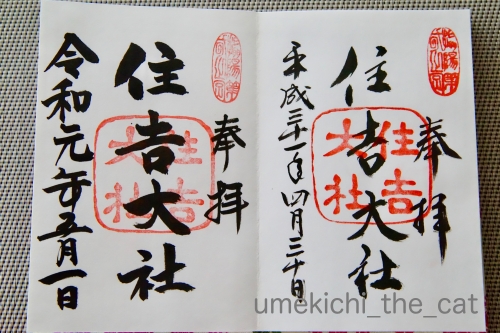 奉拝
住吉大社
平成三十一年四月三十日
住吉大社
奉拝
住吉大社
令和元年五月一日
住吉大社
umekichi_the_cat